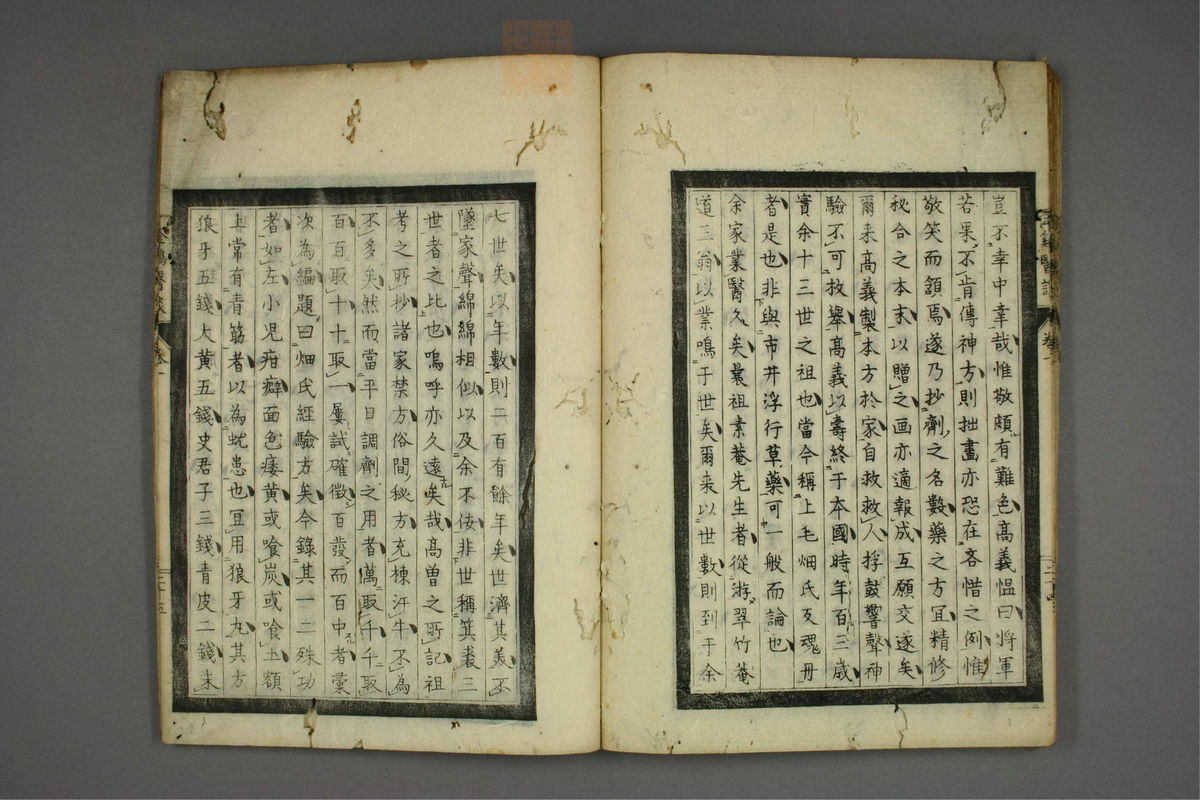 豈不幸中幸哉惟敬頗有難色高義愠曰将軍
若果不肯傳神方則拙畫亦恐在吝惜之例惟
敬笑而頷焉遂乃抄劑之名數藥之方宜精修
秘合之本末以贈之画亦適報成互願交遂矣
爾来高義製本方於家自救救人桴鼓響聲神
驗不可枚舉高義以壽終于本國時年百三歳
實余十三世之祖也當今稱上毛畑氏反魂丹
者是也非與市井浮行草藥可一般而論也
余家業醫久矣曩祖素菴先生者從游翠竹菴
道三翁以業鳴于世矣爾来以世數則到于余
七世矣以年數則二百有餘年矣世濟其美不
墜家聲綿綿相似以及余不佞非世稱箕裘三
世者之比也嗚呼亦久遠矣哉高曽之所記祖
考之所抄諸家禁方俗間秘方充棟汗牛不為
不多矣然而當平日調劑之用者萬取千千取
百百取十十取一屡試確徴百發而百中者彙
次為編題曰畑氏經驗方矣今錄其一二殊功
者如左小児疳癖面色痿黄或喰炭或喰土額
上常有青筋者以為蚘患也宜用狼牙丸其方
狼牙五錢大黄五錢史君子三錢青皮二錢末